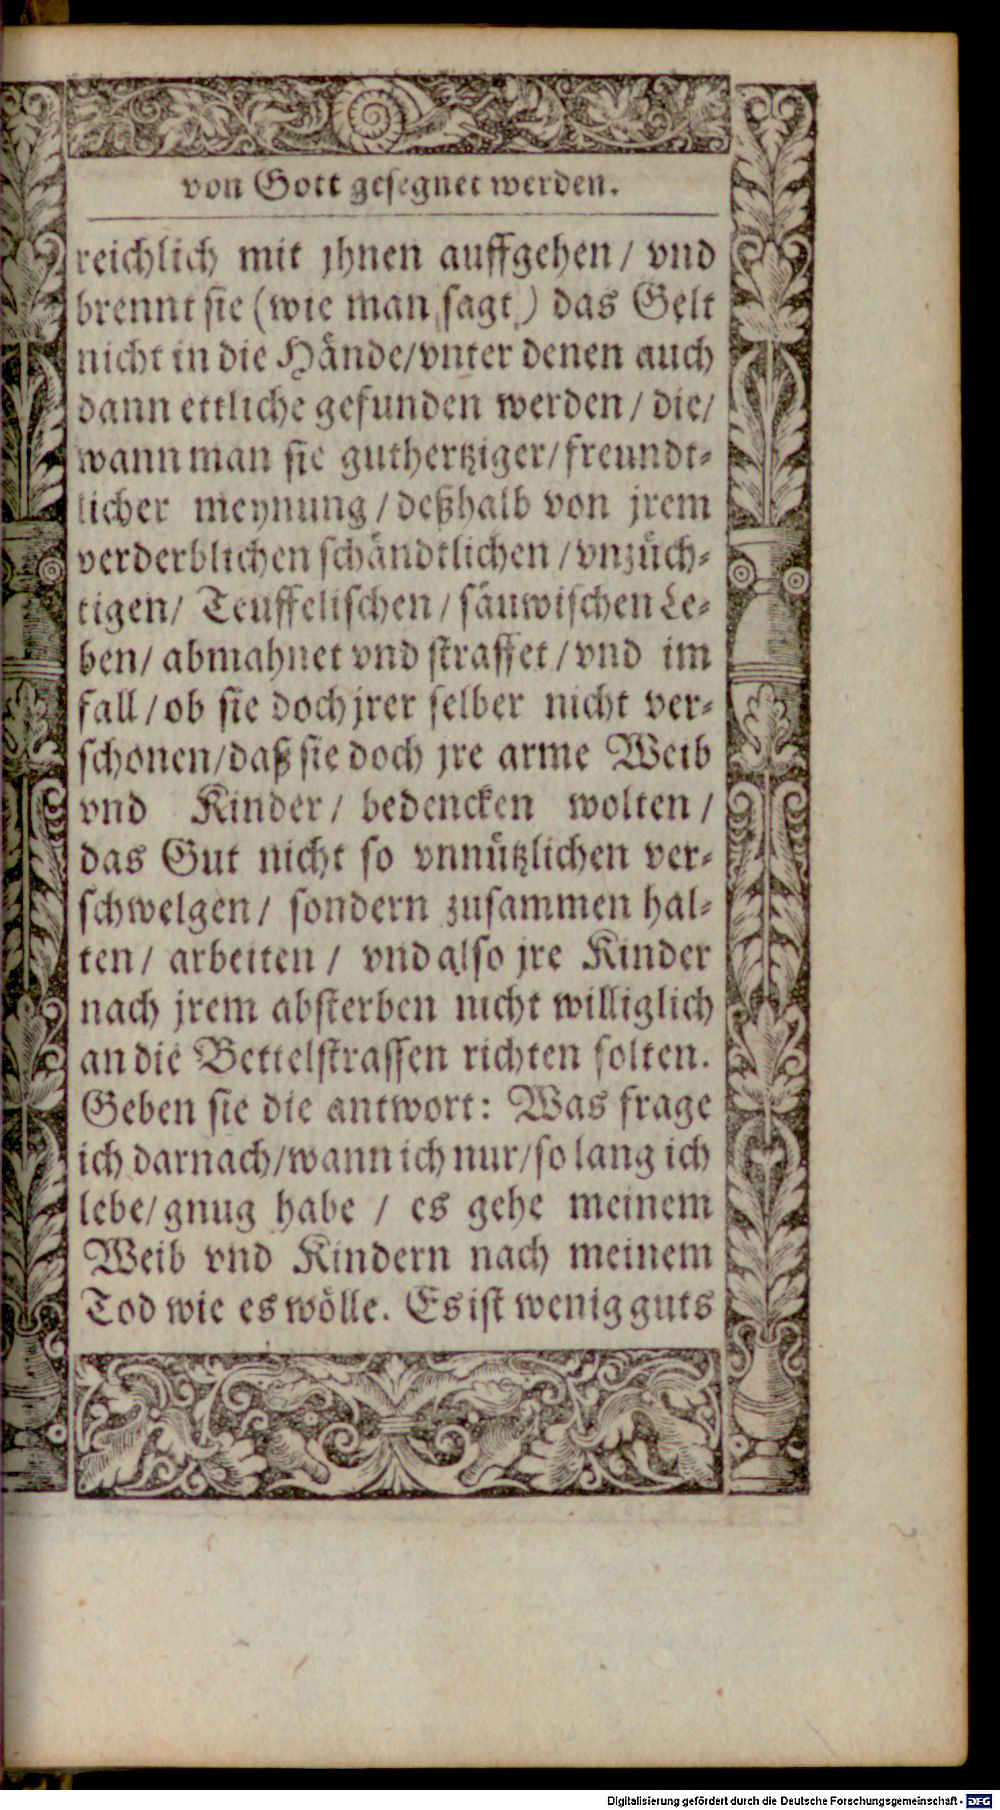 von Gott gesegnet werden.
reichlich mit jhnen auffgehen / vnd
brennt sie (wie man sagt) das Gelt
nicht in die Hände/vnter denen auch
dann ettliche gefunden werden / die/
wann man sie guthertziger/freundt-
licher meynung / deßhalb von jrem
verderblichen schändtlichen / vnzüch-
tigen/ Teuffelischen / säuwischen Le-
ben/ abmahnet vnd straffet / vnd im
fall / ob sie doch jrer selber nicht ver-
schonen/daß sie doch jre arme Weib
vnd Kinder / bedencken wolten /
das Gut nicht so vnnützlichen ver-
schwelgen / sondern zusammen hal-
ten / arbeiten / vnd also jre Kinder
nach jrem absterben nicht williglich
an die Bettelstrassen richten solten.
Geben sie die antwort: Was frage
ich darnach/wann ich nur/so lang ich
lebe/gnug habe / es gehe meinem
Weib vnd Kindern nach meinem
Tod wie es wölle. Es ist wenig guts
Digitalisierung gefördert durch die Deutsche Forschungsgemeinschaft - DFG